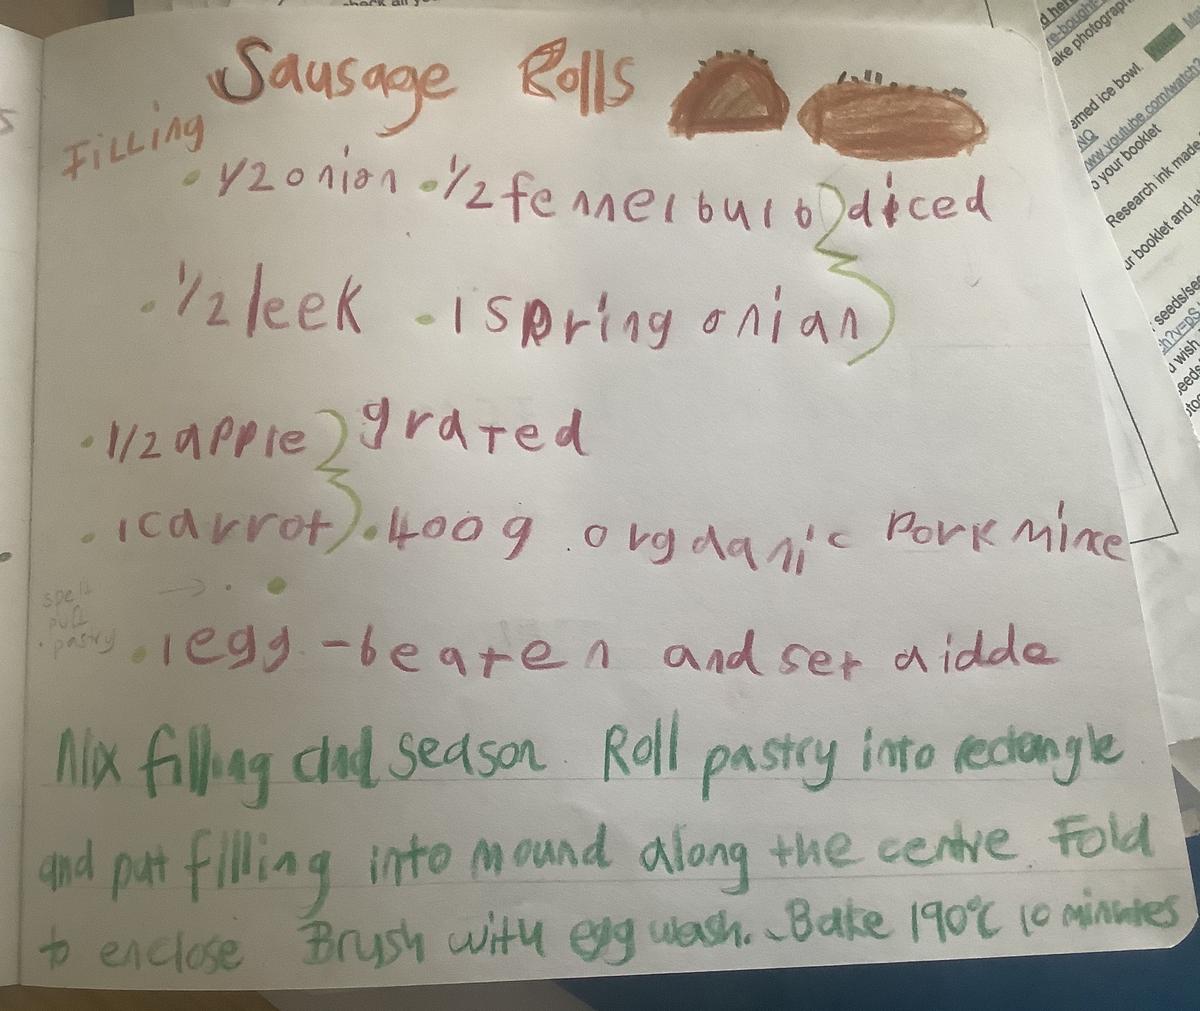 Sausage Rolls
Filling
• 1/2 onion • 1/2 fennel bulb } diced
• 1/2 leek • 1 spring onian
• 1/2 apple } grated
• 1 carrot • 400g orgdanic Pork Mince
spelt → •
puff
• pastry
• 1 egg - beaten and set aidde
Mix filling and season. Roll pastry into rectangle
and put filling into mound along the centre. Fold
to enclose Brush with egg wash. Bake 190°C 10 minutes
d here
re-bought
ake photograph
amed ice bowl.
NQ
www.youtube.com/watch?
o your booklet
Research ink made
ur booklet and
seeds/see
h?v=pS
u wish
eeds